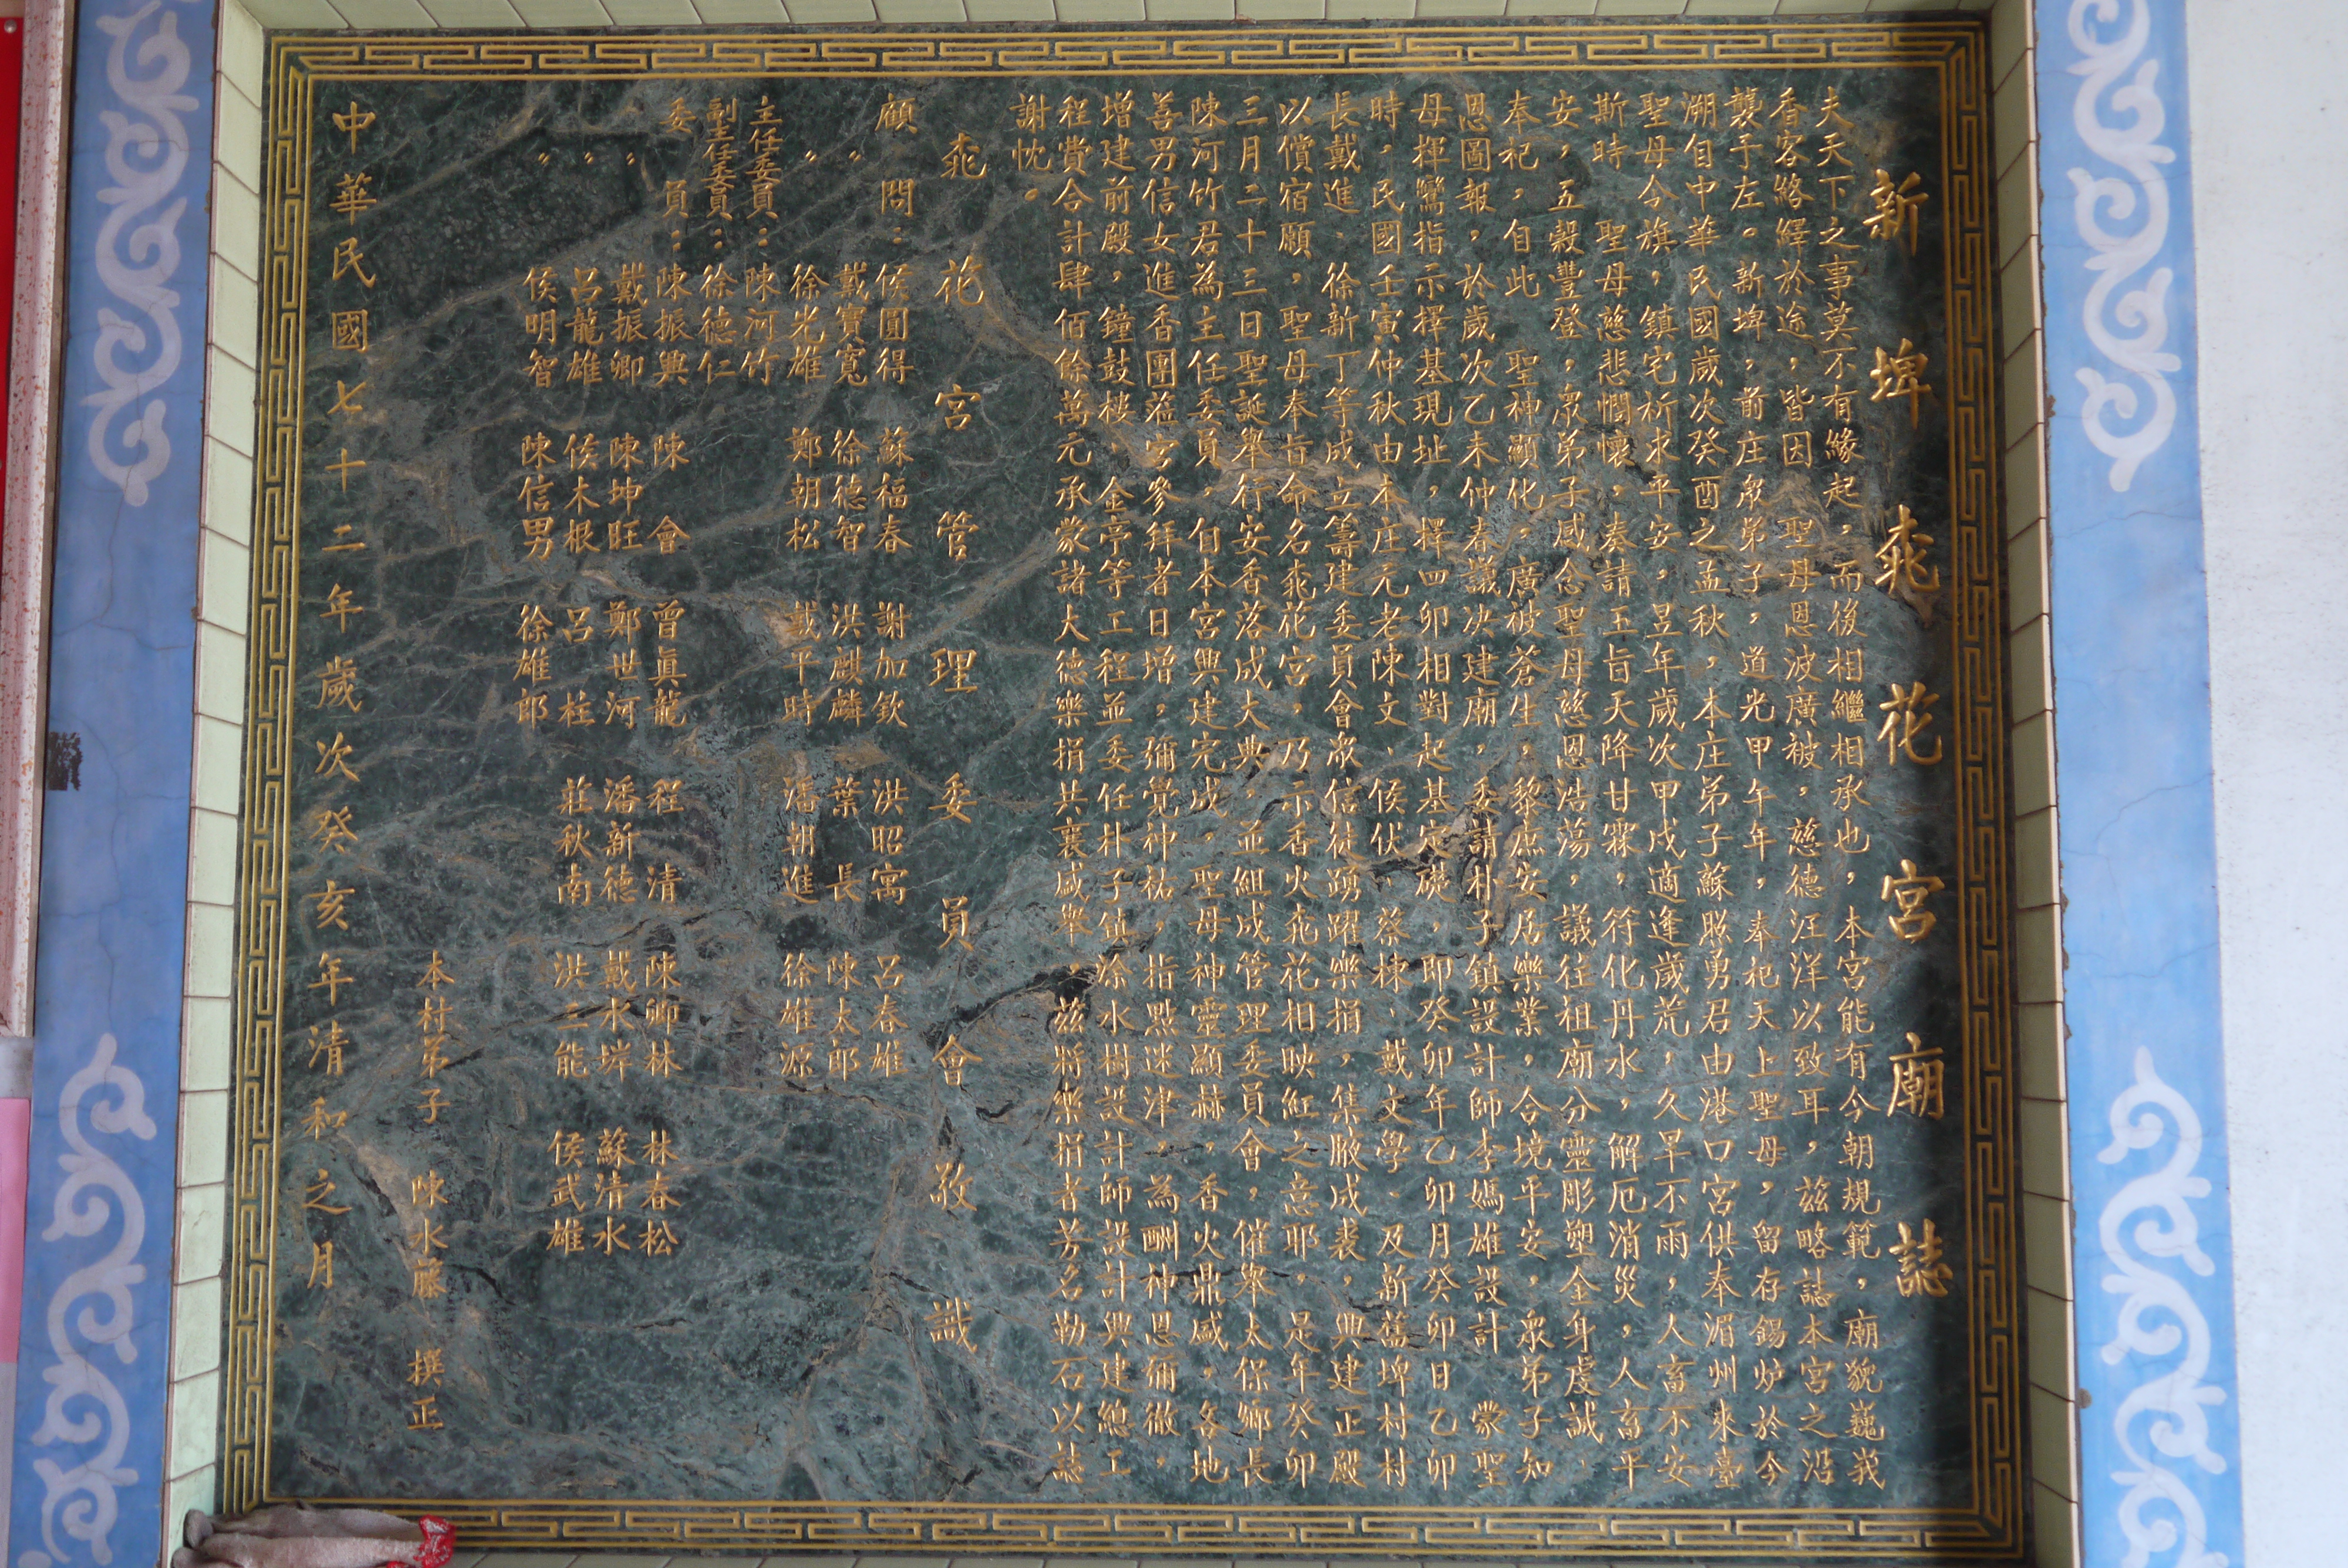 新埤桃花宮廟誌
夫天下之事莫不有緣起，而後相繼相承也，本宮能有今朝規範，廟貌巍峩
香客絡繹於途，皆因　聖母恩波廣被，慈德汪洋以致耳，茲略誌本宮之沿
襲于左。新埤，前庄眾弟子，道光甲午年，奉祀天上聖母，留存錫炉於今
溯自中華民國歲次癸酉之孟秋，本庄弟子蘇照勇君由港口宮供奉湄州來臺
聖母令旗，鎮宅祈求平安，昱年歲次甲戌適逢歲荒，久旱不雨，人畜不安
斯時　聖母慈悲憫懷，奏請玉旨天降甘霖，符化丹水，解厄消災，人畜平
安，五穀豐登，眾弟子感念聖母慈恩浩蕩，議往祖廟分靈彫塑金身虔誠、
奉祀，自此　聖神顯化，廣被蒼生，黎庶安居樂業，合境平安，眾弟子知
恩圖報，於歲次乙未仲春議決建廟，委請朴子鎮設計師李媽雄設計　蒙聖
母揮鸞指示擇基現址，擇四卯相對起基定礎，即癸卯年乙卯月癸卯日乙卯
時，民國壬寅仲秋由本庄元老陳文、侯伏、蔡棟、戴文學、及新舊埤村村
長戴進、徐新丁等成立籌建委員會眾信徒踴躍樂捐，集腋成裘，興建正殿
以償宿願，聖母奉旨命名桃花宮，乃示香火桃花相映紅之意耶，是年癸卯
三月二十三日聖誕舉行安香落成大典，並組成管理委員會，催舉太保鄉長
陳河竹君為主任委員，自本宮興建完成，聖母神靈顯赫，香火鼎盛，各地
善男信女進香團蒞宮參拜者日增，彌覺神祐，指點迷津，為酬神恩彌徹，
增建前殿，鐘鼓樓，金亭等工程並委任朴子鎮涂水樹設計師設計興建總工
程費合計肆佰餘萬元承蒙諸大德樂捐共襄盛舉，茲將樂捐者芳名勒石以誌
謝忱。
桃花宮管理委員會敬識
顧問：侯圓得　蘇福春　謝加欽　洪昭寓　呂春雄
〃　戴寶寬　徐德智　洪麒麟　葉　長　陳太郎
〃　徐光雄　鄭朝松　戴平時　潘朝進　徐雄源
主任委員：陳河竹
副主任委員：徐德仁
委員：陳振興　陳　會　曾眞龍　程　清　陳鄉林　林春松
〃　戴振卿　陳坤旺　鄭世河　潘新德　戴水埤　蘇清水
〃　呂龍雄　侯木根　呂　柱　莊秋南　洪三能　侯武雄
〃　侯明智　陳信男　徐雄郎
本社弟子　陳水藤　撰正
中華民國七十二年歲次癸亥年清和之月